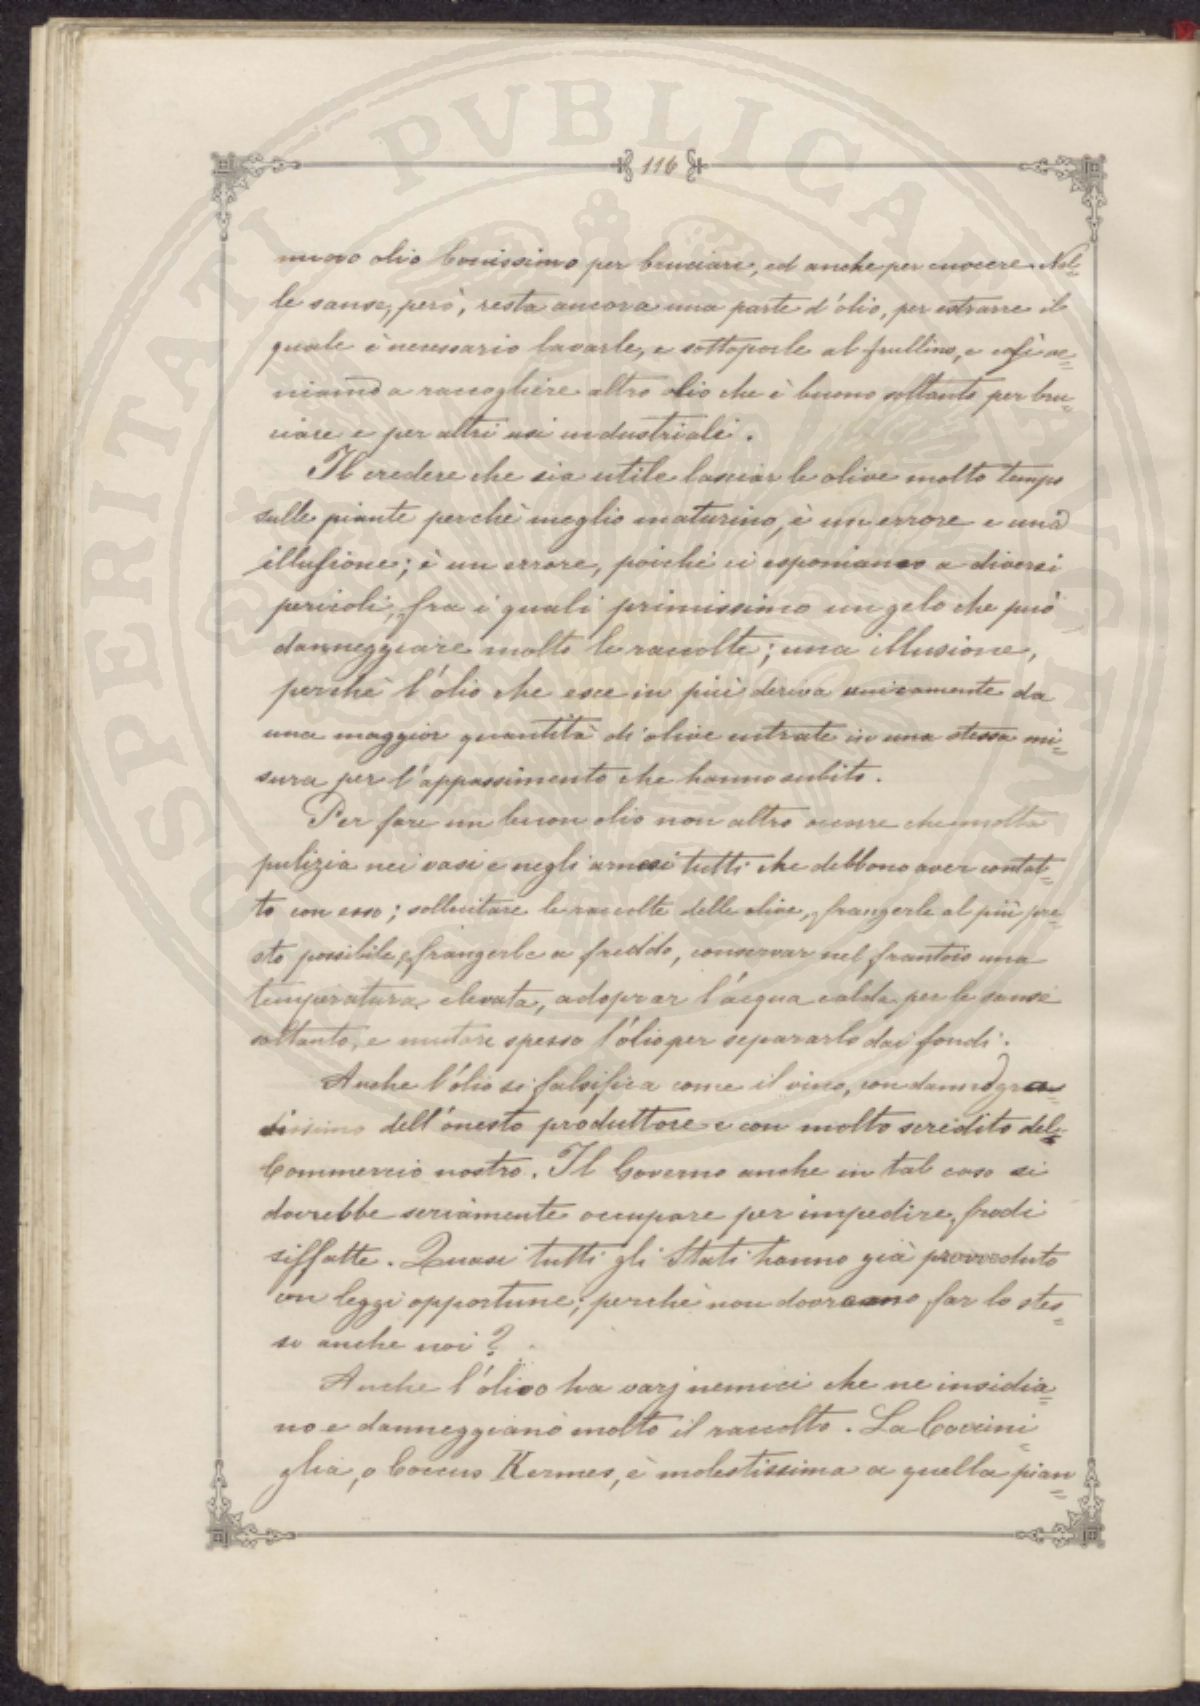 116
nuovo olio bonissimo per bruciare, ed anche per cuocere. Nel=
le sanse, però, resta ancora una parte d'olio, per estrarre il
quale è necessario lavarle, e sottoporle al frullino, e così ve=
niamo a raccogliere altro olio che è buono soltanto per bru=
ciare e per altri usi industriali.
Il credere che sia utile lasciar le olive molto tempo
sulle piante perchè meglio maturino, è un errore e una
illusione; è un errore, poichè ci esponiamo a diversi
pericoli, fra i quali primissimo un gelo che può
danneggiare molto le raccolte; una illusione,
perchè l'olio che esce in più deriva unicamente da
una maggior quantità di olive entrate in una stessa mi=
sura per l'appassimento che hanno subito.
Per fare un buon olio non altro occorre che molta
pulizia nei vasi e negli arnesi tutti che debbono aver contat=
to con esso; sollecitare le raccolte delle olive, frangerle al più pre=
sto possibile, e frangerle a freddo, conservar nel frantoio una
temperatura elevata, adoprar l'acqua calda per le sanse
soltanto, e mutare spesso l'olio per separarlo dai fondi.
Anche l'olio si falsifica come il vino, con danno gran=
dissimo dell'onesto produttore e con molto scredito del
Commercio nostro. Il Governo anche in tal caso si
dovrebbe seriamente occupare per impedire frodi
siffatte. Quasi tutti gli Stati hanno già provveduto
con leggi opportune; perchè non dovremmo far lo stes=
so anche noi?
Anche l'olivo ha varj nemici che ne insidia=
no e danneggiano molto il raccolto. La Coccini=
glia, o Coccus Kermes, è molestissima a quella pian=
SPERITATI PVBLICAE